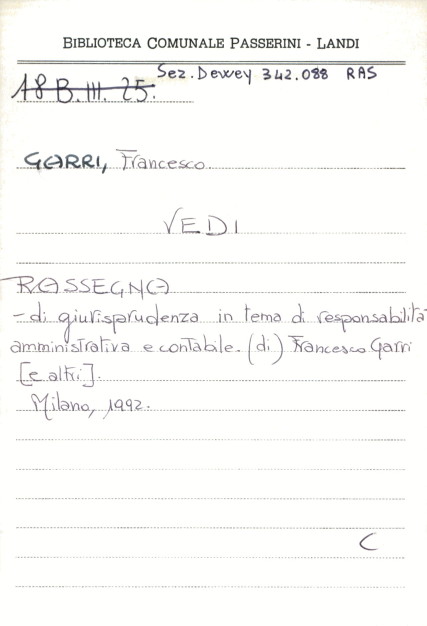 BIBLIOTECA COMUNALE PASSERINI - LANDI
Sez. Dewey 342.088 RAS
18 B. III. 25.
GARRI, Francesco.
VEDI
RASSEGNA
- di giurisprudenza in tema di responsabilità
amministrativa e contabile. (di) Francesco Garri
[e altri].
Milano, 1992.
C